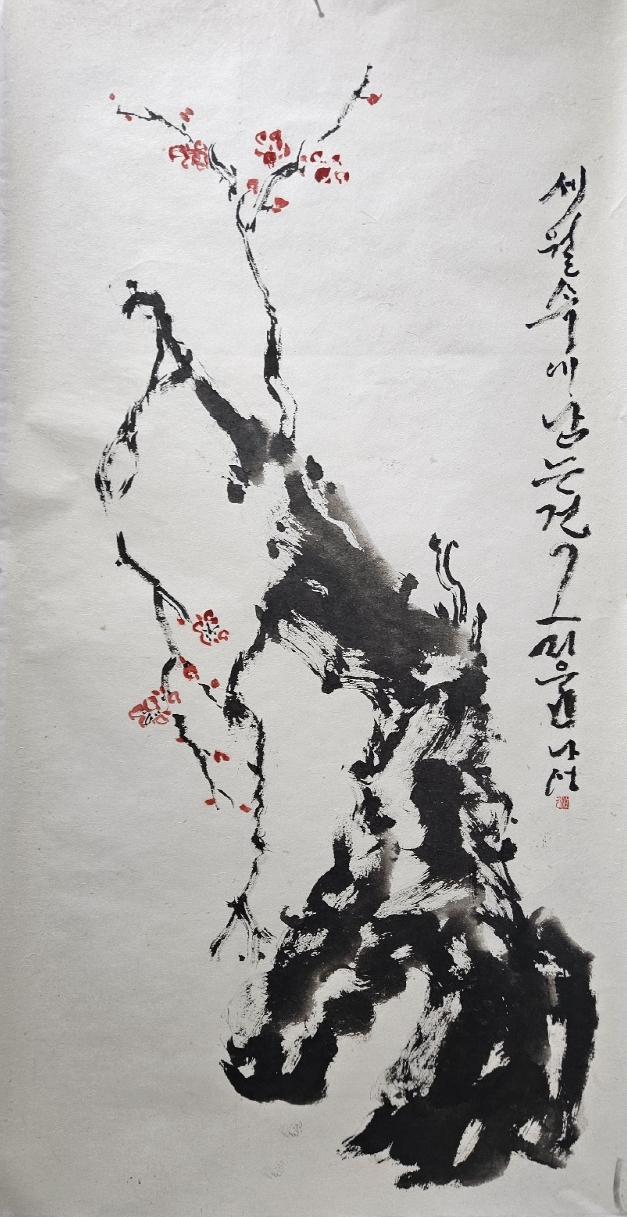 세월속에 남는건 그리움뿐